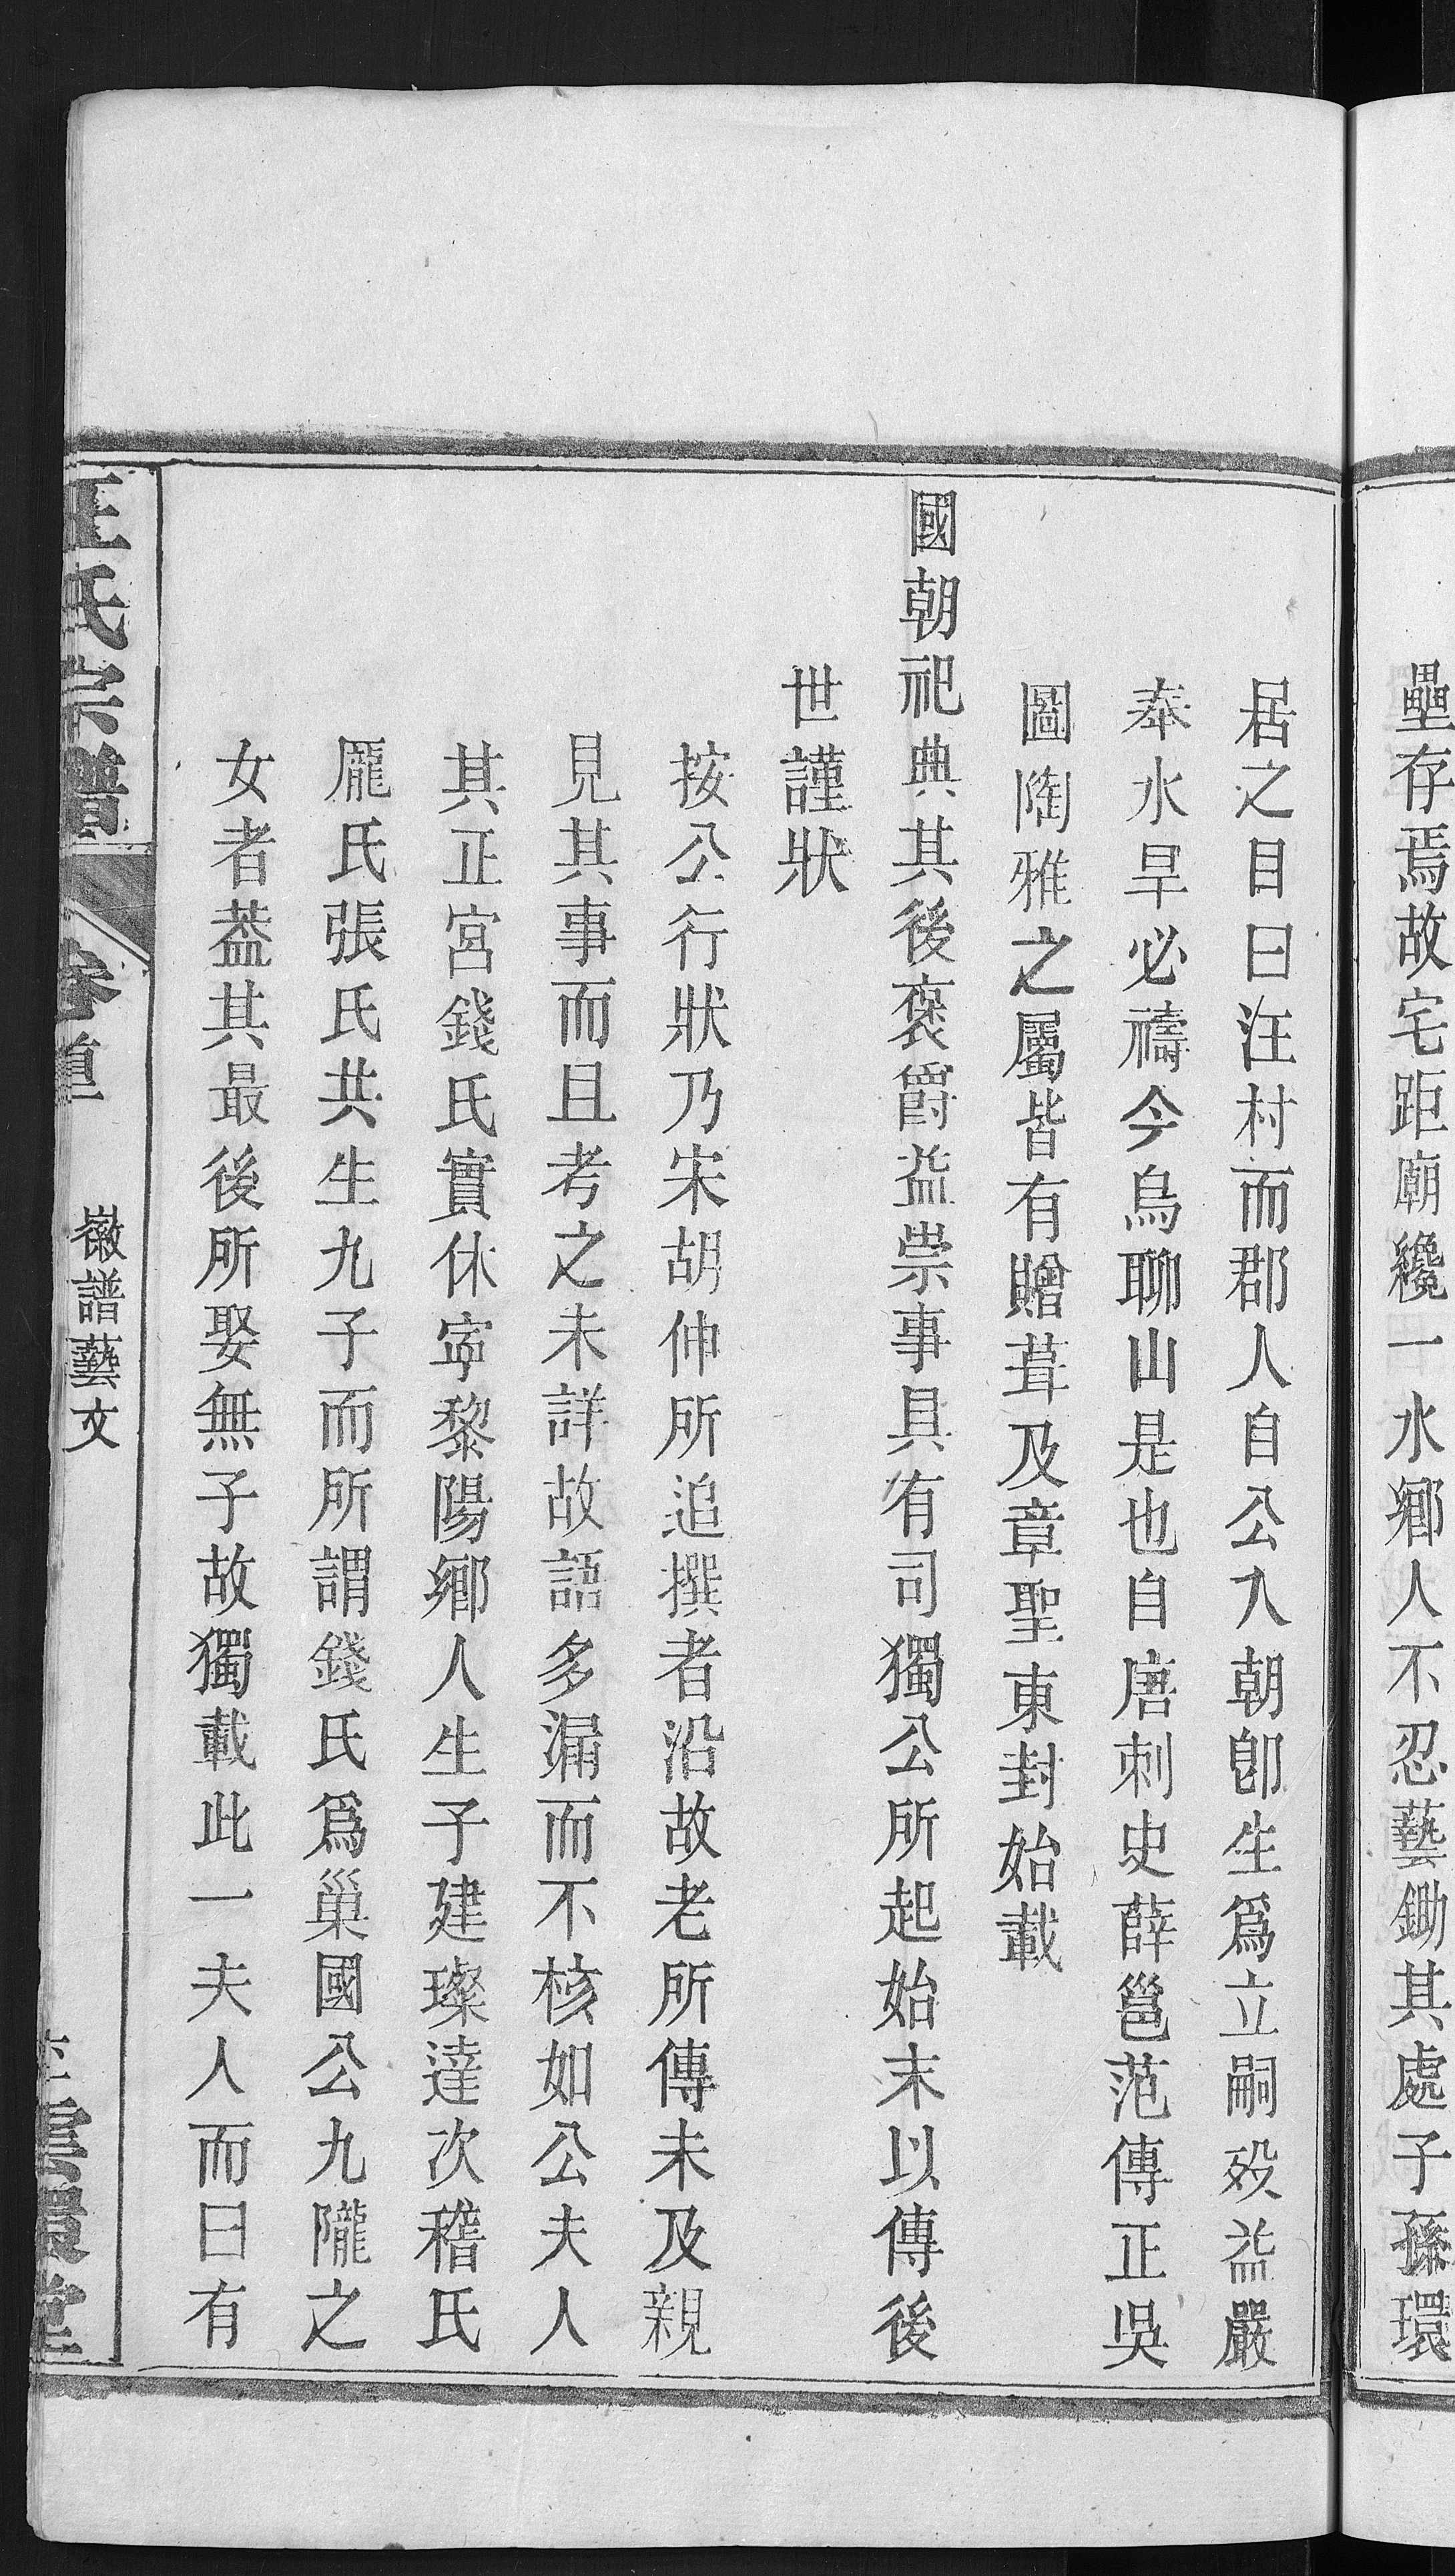 壘存焉故宅距廟纔一水鄉人不忍藝鋤其處子孫環
居之目曰汪村而郡人自公入朝卽生爲立嗣歿益嚴
奉水旱必禱今烏聊山是也自唐刺史薛邕范傳正吳
圖陶雅之屬皆有贈葺及章聖東封始載
國朝祀典其後褒爵益崇事具有司獨公所起始末以傳後
世謹狀
按公行狀乃宋胡伸所追撰者沿故老所傳未及親
見其事而且考之未詳故語多漏而不核如公夫人
其正宮錢氏實休寧黎陽鄉人生子建璨達次稽氏
龐氏張氏共生九子而所謂錢氏爲巢國公九隴之
女者葢其最後所娶無子故獨載此一夫人而曰有
汪氏宗譜
卷首
徽譜藝文
雲環堂